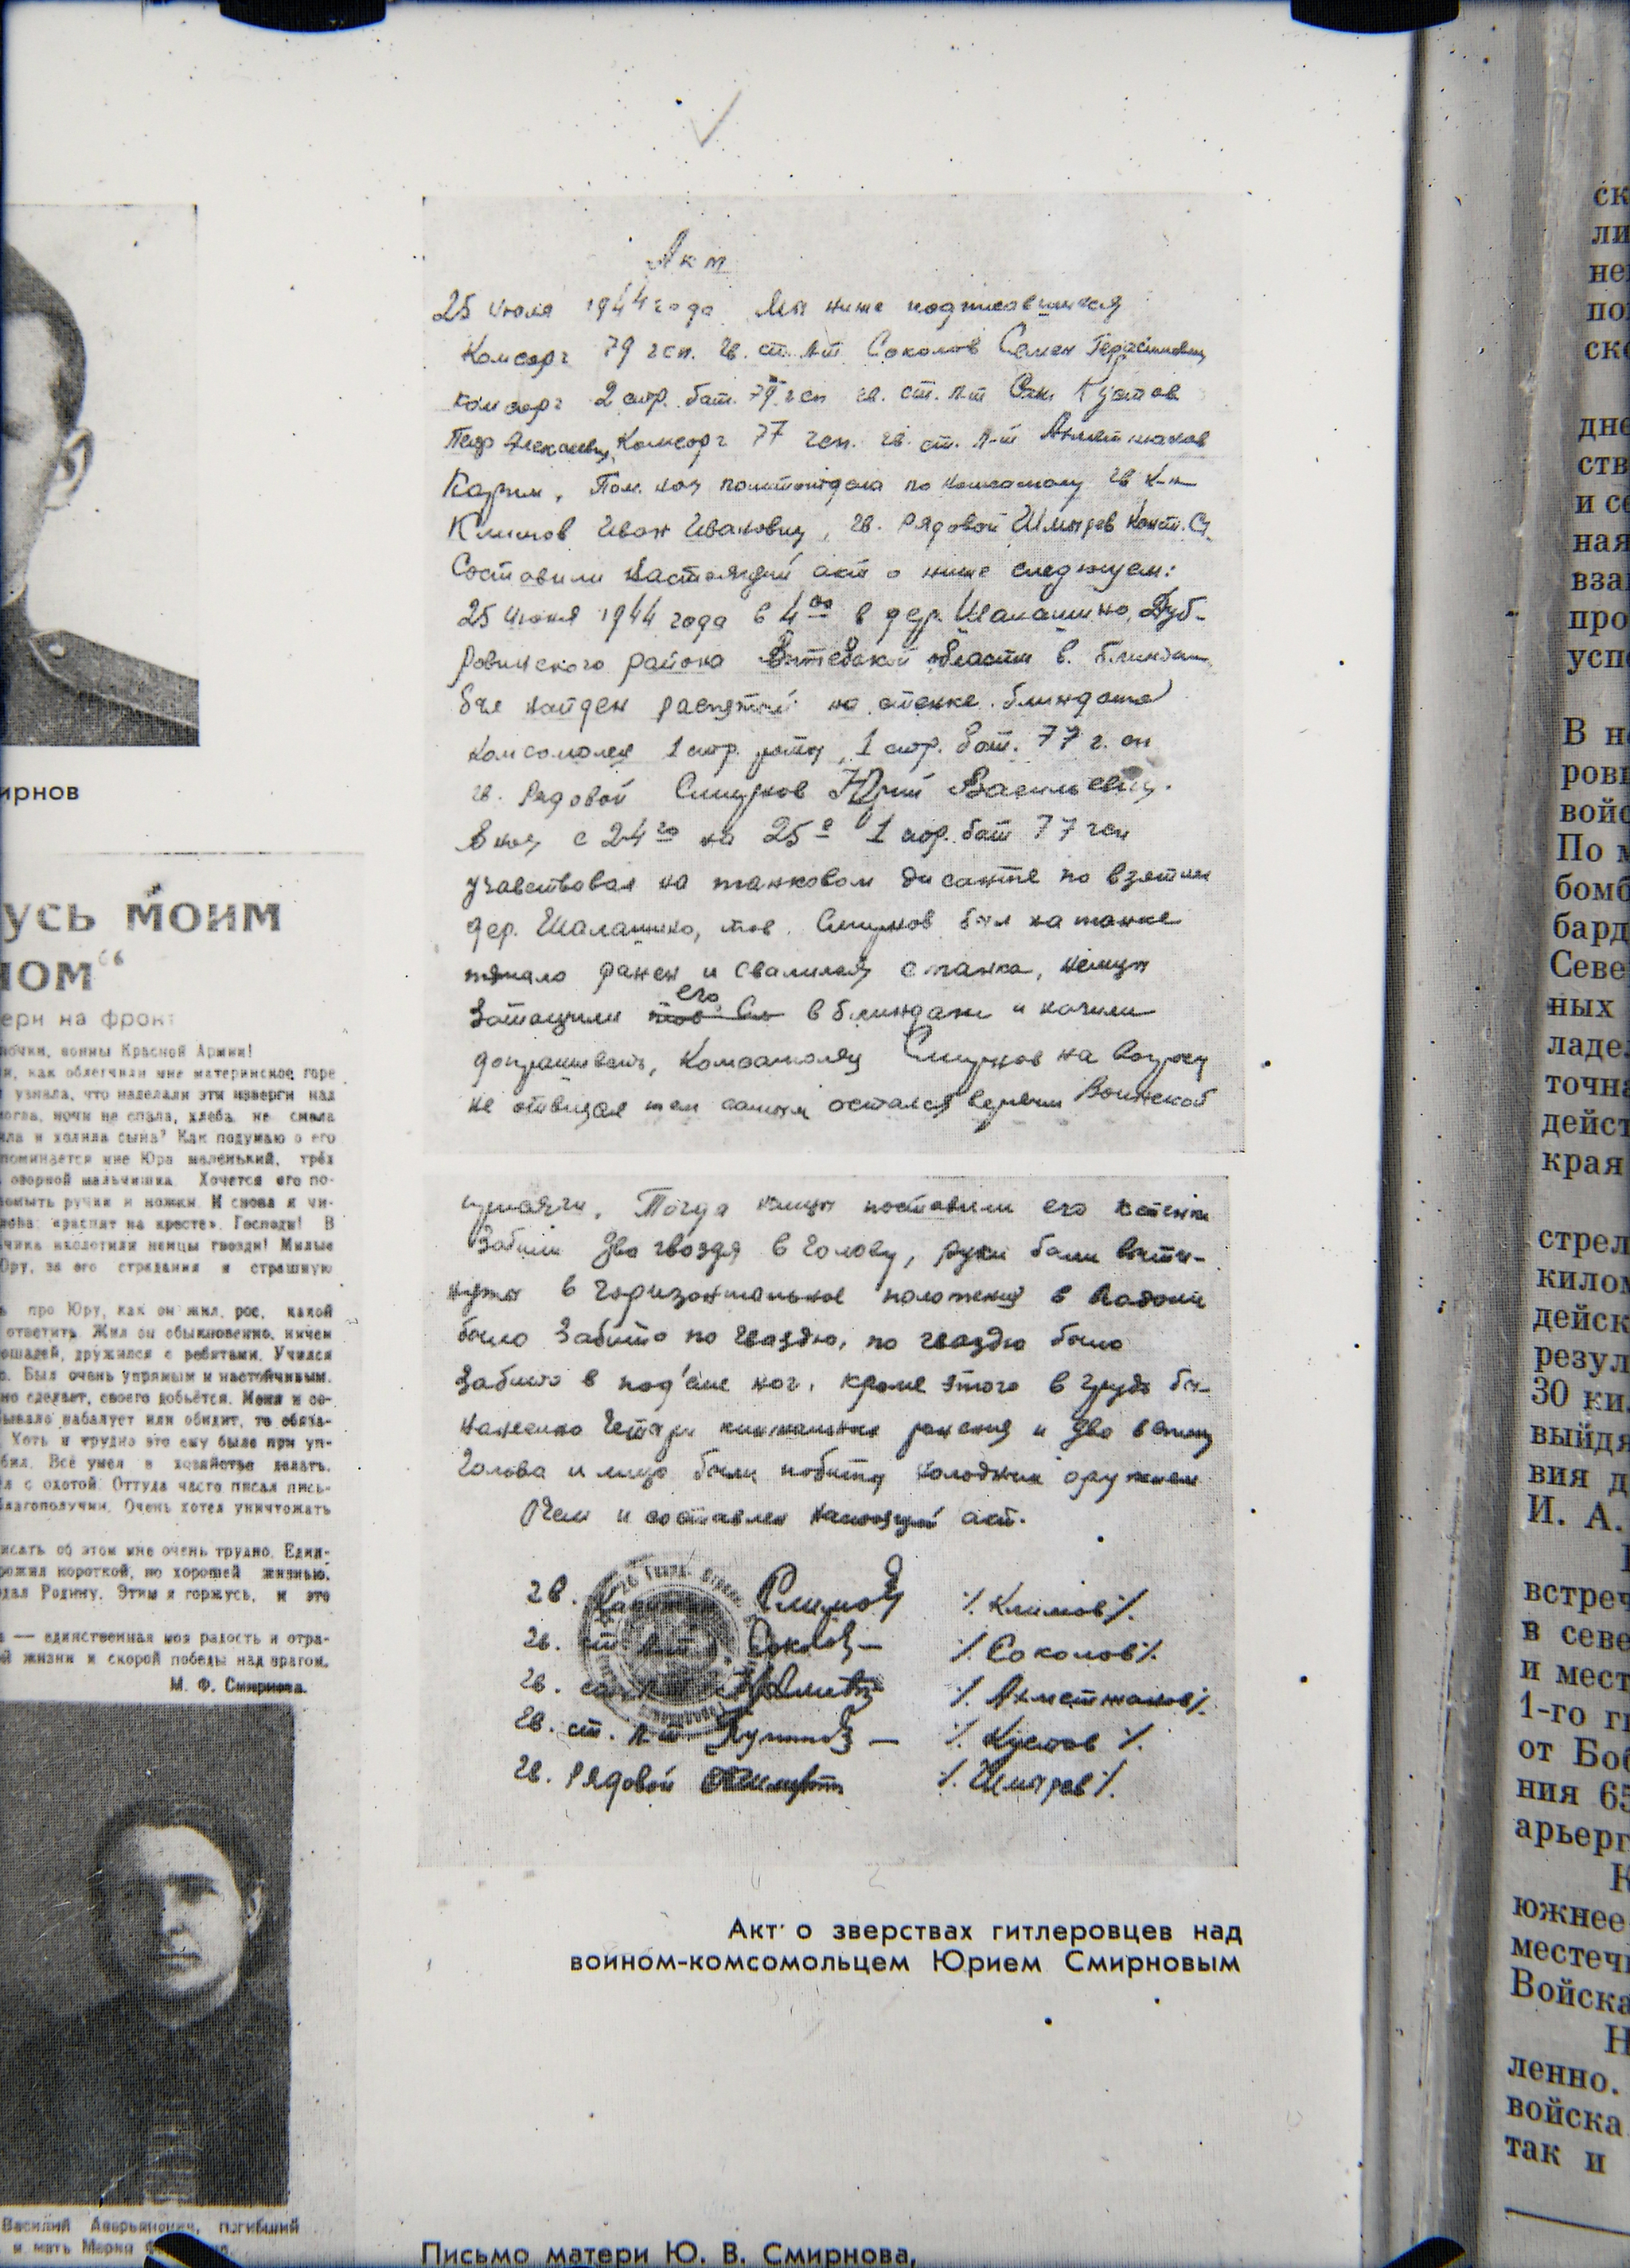 ирнов
усь моим
ном“
ери на фронт
почки, воины Красной Армии!
и, как облегчили мне материнское горе
узнала, что наделали эти изверги над
могла, ночи не спала, хлеба не смела
ла и холила сына? Как подумаю о его
споминается мне Юра маленький, трёх
озорной мальчишка. Хочется его по-
помыть ручки и ножки. И снова я чи-
слова: «распят на кресте». Господи! В
ьчика вколотили немцы гвозди! Милые
Юру, за его страдания и страшную
ь про Юру, как он жил, рос, какой
ответить. Жил он обыкновенно, ничем
лошадей, дружился с ребятами. Учился
о. Был очень упрямым и настойчивым.
но сделает, своего добьётся. Меня и се-
бывало набалует или обидит, то обяза-
Хоть и трудно это ему было при уп-
бил. Всё умел в хозяйстве делать.
л с охотой. Оттуда часто писал пись-
благополучии. Очень хотел уничтожать
исать об этом мне очень трудно. Един-
рожил короткой, но хорошей жизнью,
дал Родину. Этим я горжусь, и это
— единственная моя радость и отра-
й жизни и скорой победы над врагом.
М. Ф. Смирнова.
Василий Аверьянович, погибший
и мать Мария
Акт
25 июля 1944 года Мы ниже подписавшиеся
Комсорг 79 гсп. гв. ст. л-т Соколов Семен Герасимович
комсорг 2 стр. бат. 79 гсп гв. ст. л-т Кустов
Петр Алексеевич, Комсорг 77 гсп. гв. ст. л-т Ахметжанов
Карим, Пом. нач политотдела по комсомолу гв к-н
Климов Иван Иванович, гв. рядовой Шмырев Конст. С.
Составили настоящий акт о ниже следующем:
25 июня 1944 года в 4⁰⁰ в дер. Шалашино, Дуб-
ровинского района Витебской области в. блиндаж
был найден распятый на стенке блиндажа
комсомолец 1 стр. роты, 1 стр. бат. 77 г. сп
гв. рядовой Смирнов Юрий Васильевич.
В ночь с 24го на 25е 1 стр. бат 77 гсп
участвовал на танковом дисанте по взятии
дер. Шалашино, тов. Смирнов был на танке
тяжело ранен и свалился с танка, немцы
затащили его в блиндаж и начили
допрашивать, Комсомолец Смирнов на вопросы
не отвищал тем самым остался верным Воинской
присяги. Тогда немцы поставили его к стенки
Забили два гвоздя в голову, руки были вытя-
нуты в горизонтальное положения в ладони
было забито по гвоздю, по гвоздю было
забито в под'еме ног, кроме этого в грудь бы-
нанесино четыри кинжальных ранения и два в спину
Голова и лицо были побиты холодным оружием
О чем и составлен настоящий акт.
гв. Капитан Климов /. Климов /.
гв. ст. л-т Соколов — /. Соколов /.
гв. ст. л-т /. Ахметжанов /.
гв. ст. л-т Кустов — /. Кустов /.
гв. Рядовой /. Шмырев /.
Акт о зверствах гитлеровцев над
воином-комсомольцем Юрием Смирновым
Письмо матери Ю. В. Смирнова,
ск
ли
не
по
ск
дне
ств
и се
ная
вза
про
усп
В н
ров
войс
По м
бомб
бард
Севе
ных
ладе
точна
дейст
края
стрел
килом
дейск
резул
30 ки
выйдя
вия д
И. А.
встреч
в севе
и мест
1-го г
от Боб
ния 65
арьерг
К
южнее
местеч
Войска
Н
ленно.
войска
так и